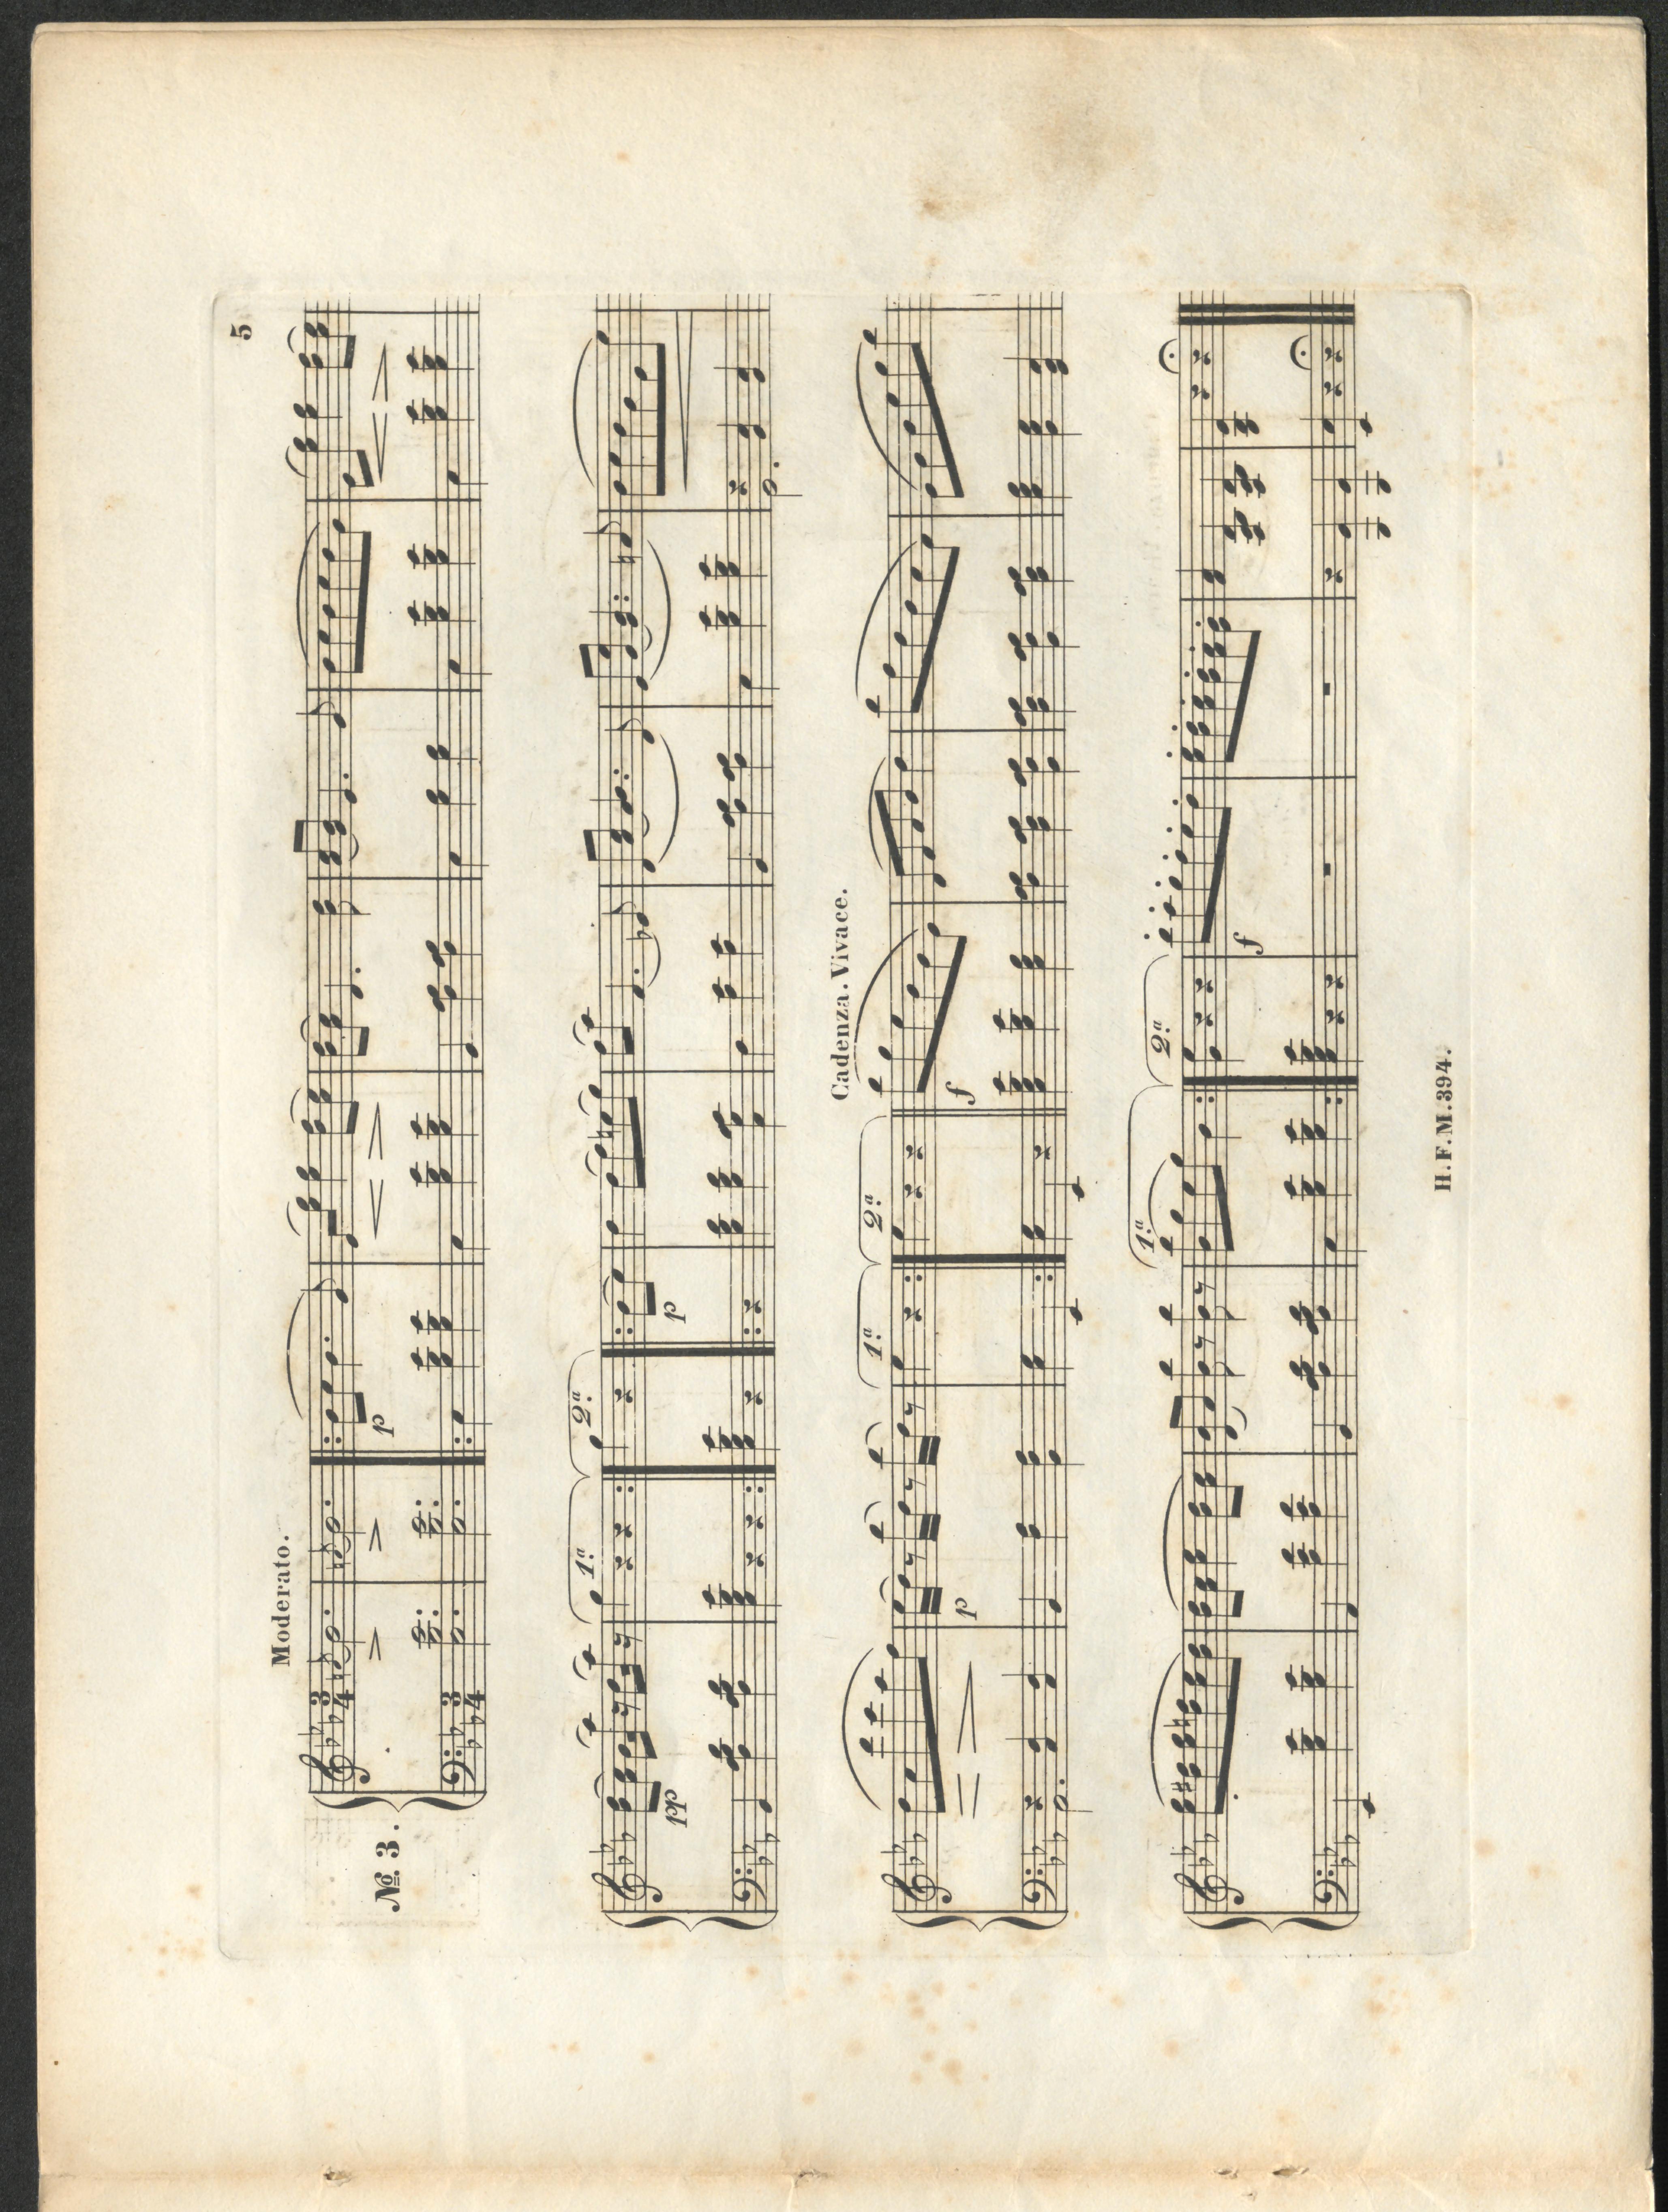 5
Moderato.
№ 3.
3 4
3 4
p
1ª
2ª
pp
p
Cadenza. Vivace.
1ª
2ª
p
f
1ª
2ª
f
H.F.M.394.